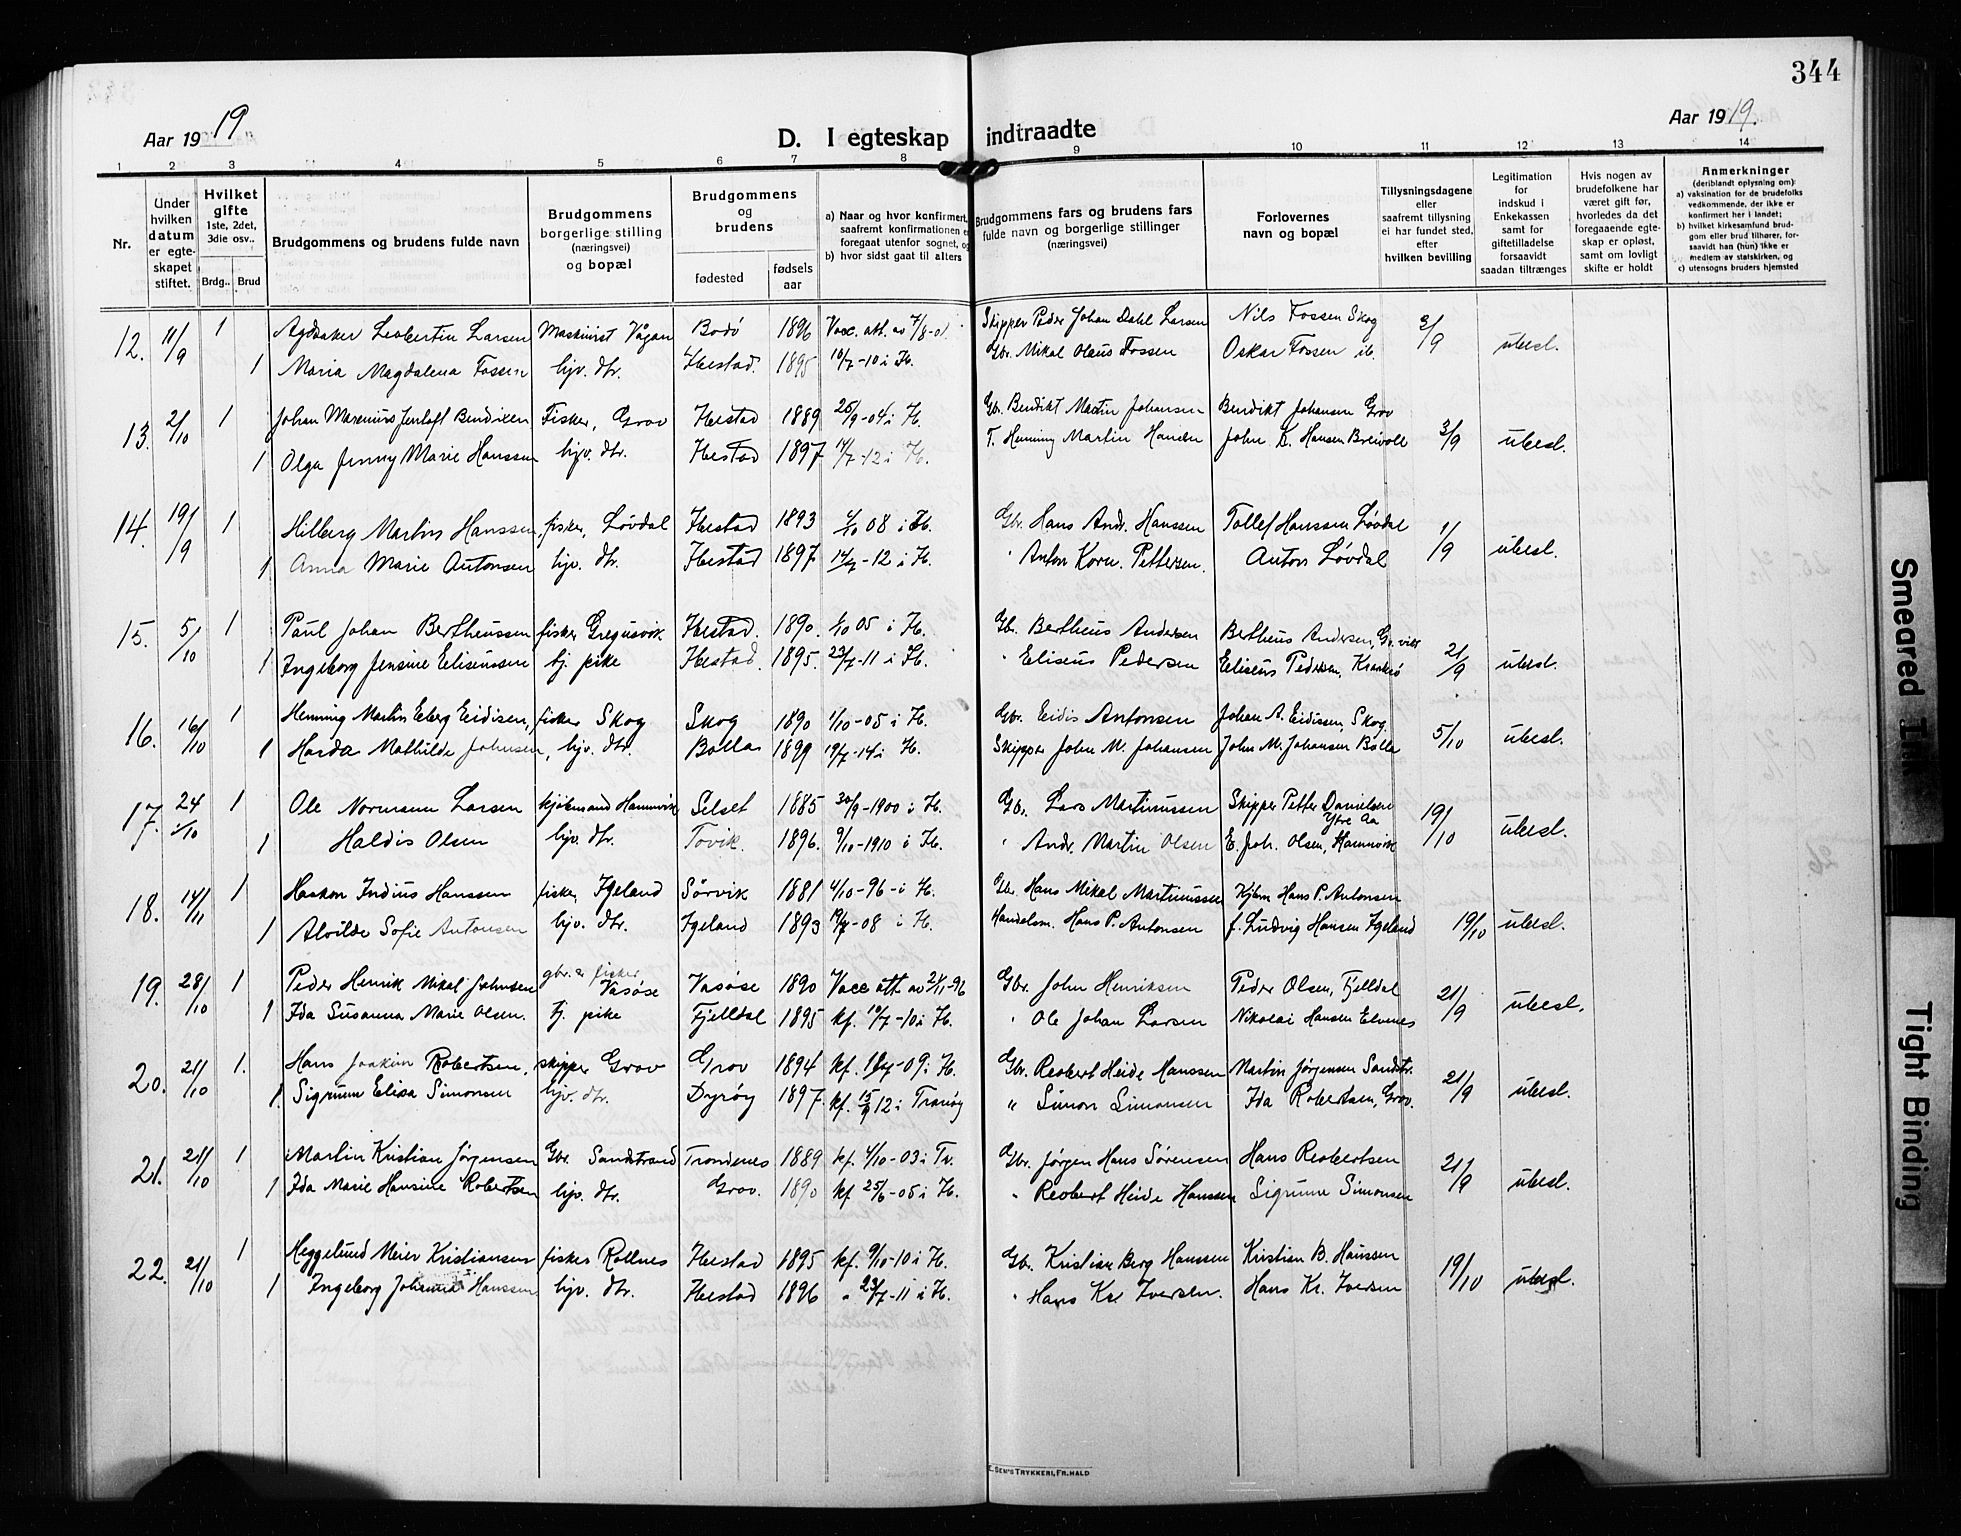 344
Aar 1919
D. I egteskap indtraadte
Aar 1919.
1 2 3 4 5 6 7 8 9 10 11 12 13 14
Nr.
Under hvilken datum er egteskapet stiftet.
Hvilket gifte 1ste, 2det, 3die osv..
Brdg.. Brud
Brudgommens og brudens fulde navn
Brudgommens borgerlige stilling (næringsvei) og bopæl
Brudgommens og brudens
fødested
fødsels aar
a) Naar og hvor konfirmert,
saafremt konfirmationen e
foregaat utenfor sognet, og
b) hvor sidst gaat til alters
Brudgommens fars og brudens fars
fulde navn og borgerlige stillinger
(næringsvei)
Forlovernes navn og bopæl
Tillysningsdagene
eller
saafremt tillysning
ei har fundet sted,
efter
hvilken bevilling
Legitimation
for
indskud i
Enkekassen
samt for
giftetilladelse
forsaavidt
saadan tiltrænges
Hvis nogen av
brudefolkene har
været gift før,
hvorledes da det
foregaaende egte-
skap er opløst,
samt om lovligt
skifte er holdt
Anmerkninger
(deriblandt oplysning om):
a) vaksination for de brudefolks
vedkommende, der ikke er
konfirmert her i landet;
b) hvilket kirkesamfund brud-
gom eller brud tilhører, for-
saavidt han (hun) ikke er
medlem av statskirken, og
c) utensogns bruders hjemsted
12. 11/9 1 Larsen Maskinist Vågan Bodö 1896 Vacc. att. av 7/8-01. Skipper Peder Johan Dahl Larsen Nils Fossen Skog 3/9 ubesl.
1 Maria Magdalena Fossen hjv. dtr. Ibestad. 1895 10/7-10 i H. Gbr. Mikal Olaus Fossen Oskar Fossen ib.
13. 2/10 1 Johan Marenius Jentoft Bendixen Fisker, Grov Ibestad 1889 25/9-04 i H. Gb. Bendikt Martin Johansen Bendikt Johansen Grov 3/9 ubesl.
1 Olga Jenny Marie Hanssen hjv. dtr. Ibestad 1897 14/7-12 i H. T. Henning Martin Hansen John K. Hansen Breivoll
14. 19/9 1 Hilberg Martin Hanssen, fisker, Lövdal Ibestad 1893 4/10 08 i H. Gbr. Hans Andr. Hanssen Tollef Hanssen Lövdal 1/9 ubesl.
1. Anna Marie Antonsen hjv. dtr. Ibestad 1897. 14/7-12 i H. " Anton Korn. Pettersen. Anton Lövdal
15. 5/10 1 Paul Johan Bertheussen fisker Gregusvik Ibestad. 1890. 1/10 05 i H. Gb. Bertheus Andersen Bertheus Andersen, Gr.vik 21/9 ubesl.
1 Ingeborg Jensine Eliseussen tj. pike Ibestad. 1895. 23/7-11 i H. " Eliseus Pedersen Eliseus Pedersen, Kraakrö
16. 16/10 1 Henning Martin Eberg Eidisen, fisker Skog Skog 1890 1/10-05 i H. Gbr. Eidis Antonsen Johan A. Eidissen, Skog. 5/10 ubesl.
1 Harda Mathilde Johnsen, hjv. dtr. Bolla 1899 19/7-14 i H. Skipper John M. Johansen John M. Johansen Bolla
17. 24/10 1 Ole Normann Larsen kjöbmand Hamnvik Selset 1885 30/9-1900 i H. Gb. Lars Martinussen Skipper Petter Danielsen Ytre Aa 19/10 ubesl.
1 Haldis Olsen hjv. dtr. Tovik. 1896. 9/10-1910 i H. " Andr. Martin Olsen E. Joh. Olsen, Hamnvik
18. 14/11 1 Haakon Indius Hanssen fisker Igeland Sörvik 1881 4/10-96-i H. Gb. Hans Mikal Martinussen Kjbm Hans P. Antonsen 19/10 ubesl.
1 Alvilde Sofie Antonsen hjv. dtr. Igeland 1893 19/7-08 i H. Handelsm. Hans P. Antonsen f. Ludvig Hansen Igeland
19. 28/10 1 Peder Henrik Mikal Johnsen gbr. & fisker Vasöse Vasöse 1890 Vacc att. av 21/11-96 Gbr. John Henriksen Peder Olsen, Fjelldal 21/9 ubesl.
1 Ida Susanna Marie Olsen. tj. pike Fjelldal 1895 kf. 10/7-10 i H. " Ole Johan Larsen Nikolai Hansen Elvenes
20. 21/10 1. Hans Joakim Robertsen, skipper Grov Grov 1894 kf. 11/7-09 i H. Gbr. Robert Heide Hanssen Martin Jørgensen Sandstr. 21/9 ubesl.
1. Sigrunn Elisa Simonsen hjv. dtr. Dyröy 1897. kf. 15/9 12 i Tranöy " Simon Simonsen Ida Robertsen, Grov.
21. 21/10 1 Martin Kristian Jørgensen Gbr. Sandstrand Trondenes 1889 kf. 4/10-03 i Tr. Gbr. Jørgen Hans Sørensen Hans Robertsen 21/9 ubesl.
1 Ida Marie Hansine Robertsen hjv. dtr. Grov. 1890 kf 25/6-05 i H. " Robert Heide Hanssen Sigrunn Simonsen
22. 21/10 1 Heggelund Meier Kristiansen fisker Rollnes Ibestad 1895 kf. 9/10-10 i H. Gb. Kristian Berg Hanssen Kristian B. Hanssen 19/10 ubesl.
1 Ingeborg Johanna Hanssen hjv. dtr. Ibestad 1896 " 23/7-11 i H. " Hans Kr. Iversen. Hans Kr. Iversen
SEN'S TRYKKERI, FR.HALD
Smeared Ink
Tight Binding